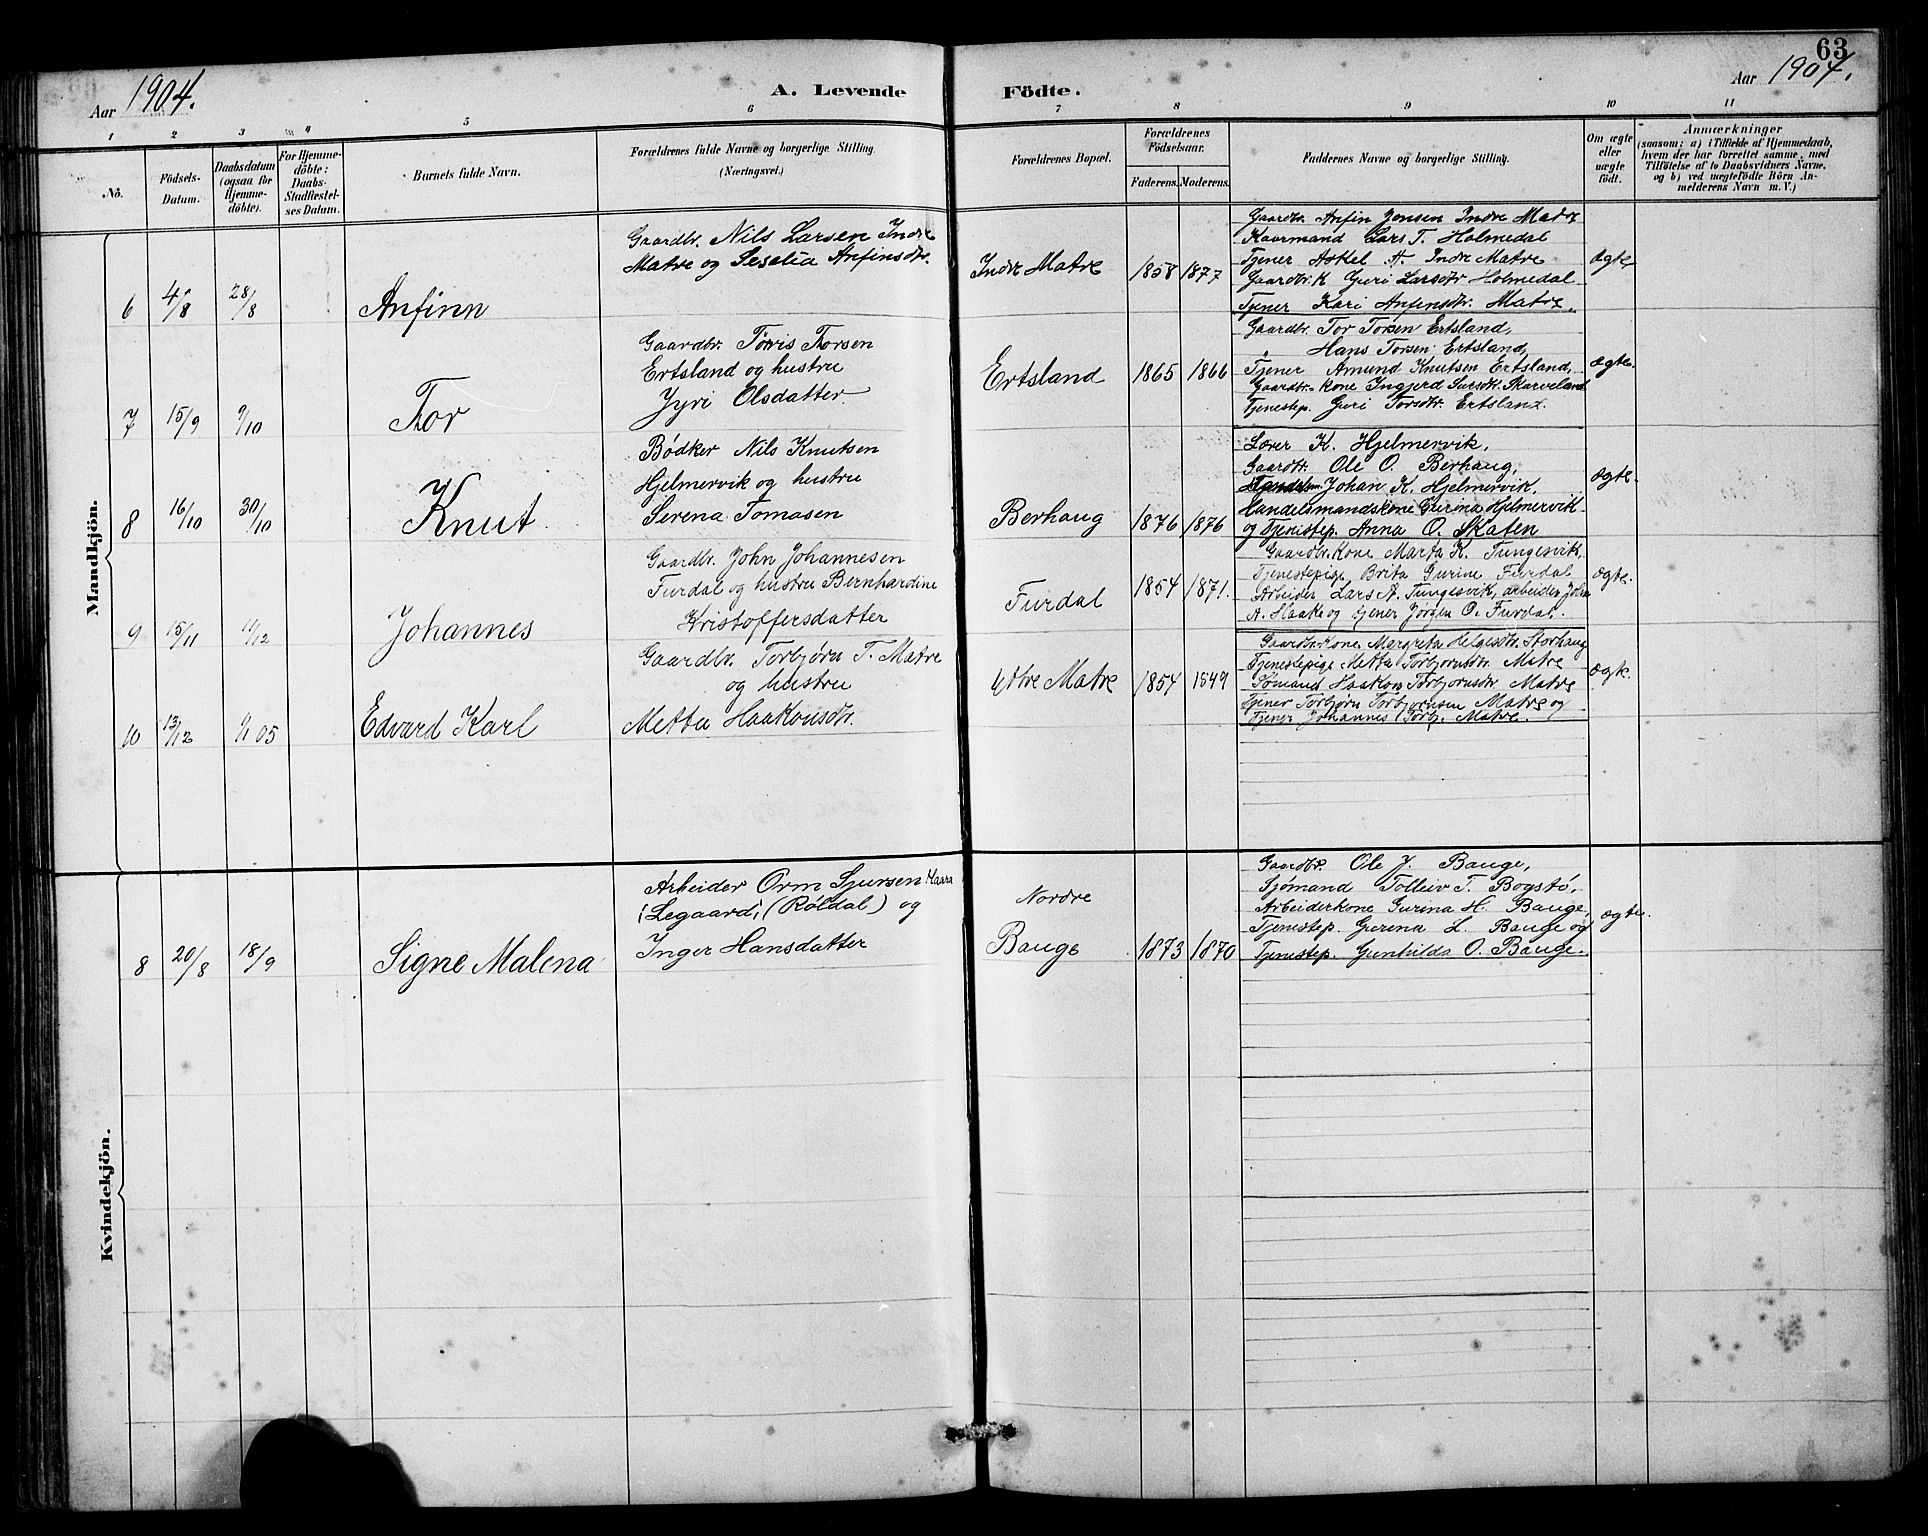 63
Aar 1904.
A. Levende Födte.
Aar 1904.
1 2 3 4 5 6 7 8 9 10 11
No.
Födsels-
Datum.
Daabsdatum
(ogsaa for
Hjemme-
döbte).
For Hjemme-
döbte:
Daabs-
Stadfæstel-
ses Datum.
Barnets fulde Navn.
Forældrenes fulde Navne og borgerlige Stilling.
(Næringsvei.)
Forældrenes Bopæl.
Forældrenes
Födselsaar.
Faderens. Moderens.
Faddernes Navne og borgerlige Stilling.
Om ægte
eller
uægte
födt.
Anmærkninger
(saasom: a) i Tilfælde af Hjemmedaab,
hvem der har forrettet samme, med
Tilföielse af to Daabsvidners Navne,
og b) ved uægtefödte Börn An-
melderens Navn m. V.)
Mandkjön.
6 4/8 28/8 Anfinn
Gaardbr. Nils Larsen Indre
Matre og Seselia Anfinsdtr.
Indre Matre 1858 1877
Gaardbr. Anfin Jensen Indre Matre
Kaarmand Lars T. Holmedal
Tjener Askel A. Indre Matre
Gaardbr. K Guri Larsdtr Holmedal
Tjener Kari Anfinsdtr. Matre.
Ægte
7 15/9 9/10 Tor
Gaardbr. Törris Torsen
Ertsland og hustru
Jyri Olsdatter
Ertsland 1865 1866
Gaardbr. Tor Torsen Ertsland,
Hans Torsen Ertsland,
Tjener Amund Knutsen Ertsland,
Gaardbr. kone Ingjerd Larsdtr. Skarveland
Tjenestep. Guri Torsdtr. Ertsland.
ægte.
8 16/10 30/10 Knut
Bødker Nils Knutsen
Hjelmervik og hustru
Serena Tomasen
Berhaug 1876 1876
Lærer K. Hjelmervik,
Gaardbr. Ole O. Berhaug,
Johan K. Hjelmervik,
Handelsmandskone Gurina Hjelmervik
og Tjenistep. Anna O. Skaten
ægte.
9 15/11 11/12 Johannes
Gaardbr. John Johannesen
Furdal og hustru Bernhardine
Kristoffersdatter
Furdal 1854 1871.
Gaardbr. Kone Marta K. Tungesvik,
Tjenestepige Brita Gurine Furdal
Arbeider Lars A. Tungesvik, arbeider John
A. Haake og tjener Jørgen O. Furdal.
ægte.
10 13/12 1/1 05 Edvard Karl
Gaardbr. Torbjørn T. Matre
og hustru
Metta Haakonsdtr.
Ytre Matre 1854 1849
Gaardbr. Kone Margreta Helgesdtr. Storhaug
Tjenestepige Metta Torbjørnsdtr. Matre
Sømand Haakon Torbjørnsdtr. Matre
Tjener Torbjørn Torbjørnsen Matre og
Tjener Johannes Torbj. Matre.
ægte.
Kvindekjön.
8 20/8 18/9 Signe Malena
Arbeider Orm Sjursen Haara
(Legaard) (Røldal) og
Inger Hansdatter
Nordre
Bauge 1873 1870
Gaardbr. Ole J. Bauge,
Sjømand Tolleiv T. Bogstø,
Arbeiderkone Gurina H. Bauge,
Tjenistep. Gurina L. Bauge og
Tjenistep. Gunhilda O. Bauge.
ægte.